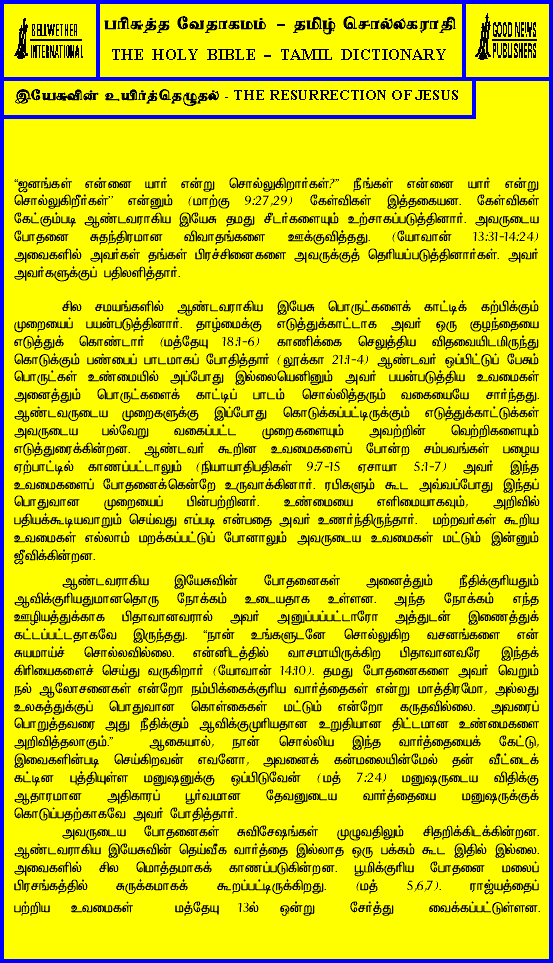 BELLWETHER
INTERNATIONAL
பரிசுத்த வேதாகமம் – தமிழ் சொல்லகராதி
THE HOLY BIBLE – TAMIL DICTIONARY
GOOD NEWS
PUBLISHERS
இயேசுவின் உயிர்த்தெழுதல் - THE RESURRECTION OF JESUS
“ஜனங்கள் என்னை யார் என்று சொல்லுகிறார்கள்?” நீங்கள் என்னை யார் என்று
சொல்லுகிறீர்கள்’’ என்னும் (மாற்கு 9:27,29) கேள்விகள் இத்தகையன. கேள்விகள்
கேட்கும்படி ஆண்டவராகிய இயேசு தமது சீடர்களையும் உற்சாகப்படுத்தினார். அவருடைய
போதனை சுதந்திரமான விவாதங்களை ஊக்குவித்தது. (யோவான் 13:31-14:24)
அவைகளில் அவர்கள் தங்கள் பிரச்சினைகளை அவருக்குத் தெரியப்படுத்தினார்கள். அவர்
அவர்களுக்குப் பதிலளித்தார்.
சில சமயங்களில் ஆண்டவராகிய இயேசு பொருட்களைக் காட்டிக் கற்பிக்கும்
முறையைப் பயன்படுத்தினார். தாழ்மைக்கு எடுத்துக்காட்டாக அவர் ஒரு குழந்தையை
எடுத்துக் கொண்டார் (மத்தேயு 18:1-6) காணிக்கை செலுத்திய விதவையிடமிருந்து
கொடுக்கும் பண்பைப் பாடமாகப் போதித்தார் (லூக்கா 21:1-4) ஆண்டவர் ஒப்பிட்டுப் பேசும்
பொருட்கள் உண்மையில் அப்போது இல்லையெனினும் அவர் பயன்படுத்திய உவமைகள்
அனைத்தும் பொருட்களைக் காட்டிப் பாடம் சொல்லித்தரும் வகையையே சார்ந்தது.
ஆண்டவருடைய முறைகளுக்கு இப்போது கொடுக்கப்பட்டிருக்கும் எடுத்துக்காட்டுக்கள்
அவருடைய பல்வேறு வகைப்பட்ட முறைகளையும் அவற்றின் வெற்றிகளையும்
எடுத்துரைக்கின்றன. ஆண்டவர் கூறின உவமைகளைப் போன்ற சம்பவங்கள் பழைய
ஏற்பாட்டில் காணப்பட்டாலும் (நியாயாதிபதிகள் 9:7-15 ஏசாயா 5:1-7) அவர் இந்த
உவமைகளைப் போதனைக்கென்றே உருவாக்கினார். ரபிகளும் கூட அவ்வப்போது இந்தப்
பொதுவான முறையைப் பின்பற்றினர். உண்மையை எளிமையாகவும், அறிவில்
பதியக்கூடியவாறும் செய்வது எப்படி என்பதை அவர் உணர்ந்திருந்தார். மற்றவர்கள் கூறிய
உவமைகள் எல்லாம் மறக்கப்பட்டுப் போனாலும் அவருடைய உவமைகள் மட்டும் இன்னும்
ஜீவிக்கின்றன.
ஆண்டவராகிய இயேசுவின் போதனைகள் அனைத்தும் நீதிக்குரியதும்
ஆவிக்குரியதுமானதொரு நோக்கம் உடையதாக உள்ளன. அந்த நோக்கம் எந்த
ஊழியத்துக்காக பிதாவானவரால் அவர் அனுப்பப்பட்டாரோ அத்துடன் இணைத்துக்
கட்டப்பட்டதாகவே இருந்தது. “நான் உங்களுடனே சொல்லுகிற வசனங்களை என்
சுயமாய்ச் சொல்லவில்லை. என்னிடத்தில் வாசமாயிருக்கிற பிதாவானவரே இந்தக்
கிரியைகளைச் செய்து வருகிறார் (யோவான் 14:10). தமது போதனைகளை அவர் வெறும்
நல் ஆலோசனைகள் என்றோ நம்பிக்கைக்குரிய வார்த்தைகள் என்று மாத்திரமோ, அல்லது
உலகத்துக்குப் பொதுவான கொள்கைகள் மட்டும் என்றோ கருதவில்லை. அவரைப்
பொறுத்தவரை அது நீதிக்கும் ஆவிக்குமுரியதான உறுதியான திட்டமான உண்மைகளை
அறிவித்தலாகும்.” ஆகையால், நான் சொல்லிய இந்த வார்த்தையைக் கேட்டு,
இவைகளின்படி செய்கிறவன் எவனோ, அவனைக் கன்மலையின்மேல் தன் வீட்டைக்
கட்டின புத்தியுள்ள மனுஷனுக்கு ஒப்பிடுவேன் (மத் 7:24) மனுஷருடைய விதிக்கு
ஆதாரமான அதிகாரப் பூர்வமான தேவனுடைய வார்த்தையை மனுஷருக்குக்
கொடுப்பதற்காகவே அவர் போதித்தார்.
அவருடைய போதனைகள் சுவிசேஷங்கள் முழுவதிலும் சிதறிக்கிடக்கின்றன.
ஆண்டவராகிய இயேசுவின் தெய்வீக வார்த்தை இல்லாத ஒரு பக்கம் கூட இதில் இல்லை.
அவைகளில் சில மொத்தமாகக் காணப்படுகின்றன. பூமிக்குரிய போதனை மலைப்
பிரசங்கத்தில் சுருக்கமாகக் கூறப்பட்டிருக்கிறது. (மத் 5,6,7). ராஜ்யத்தைப்
பற்றிய உவமைகள் மத்தேயு 13ல் ஒன்று சேர்த்து வைக்கப்பட்டுள்ளன.